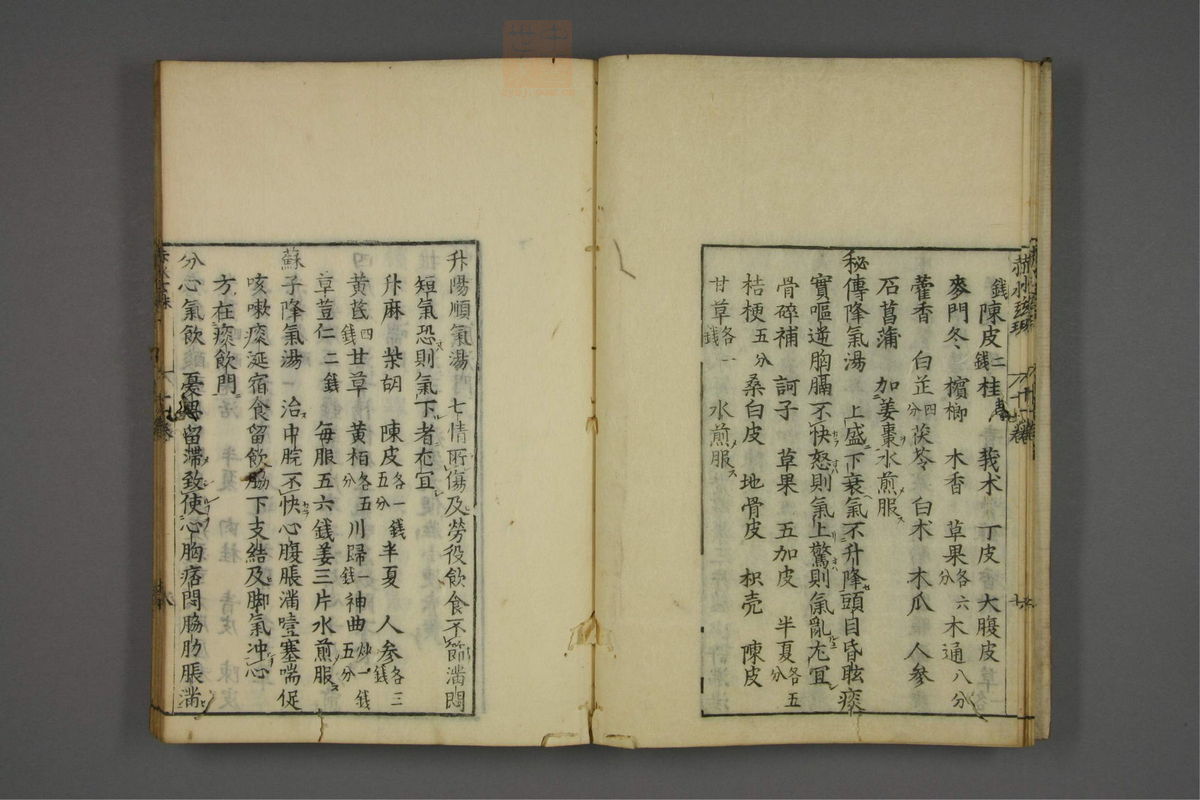 錢陳皮二錢桂 莪术 丁皮 大腹皮
麥門冬 檳榔 木香 草果各六分木通八分
藿香 白芷四分茯苓 白术 木瓜 人參
石菖蒲 加姜棗水煎服
秘傳降氣湯 上盛下衰氣不升降頭目昏眩痰
實嘔逆胸膈不快怒則氣上驚則氣亂尤宜
骨碎補 訶子 草果 五加皮 半夏各五分
桔梗五分 桑白皮 地骨皮 枳壳 陳皮
甘草各一錢 水煎服
升陽順氣湯 七情所傷及勞役飲食不節滿悶
短氣恐則氣下者尤宜
升麻 柴胡 陳皮各一錢五分半夏 人參各三錢
黃芪四錢甘草 黃栢各五分川歸一錢神曲炒一錢五分
草荳仁二錢 每服五六錢姜三片水煎服
蘇子降氣湯 治中脘不快心腹脹滿噎塞喘促
咳嗽痰涎宿食留飲脇下支結及脚氣冲心
方在痰飲門
分心氣飲 憂留滯致使心胸痞悶脇肋脹滿